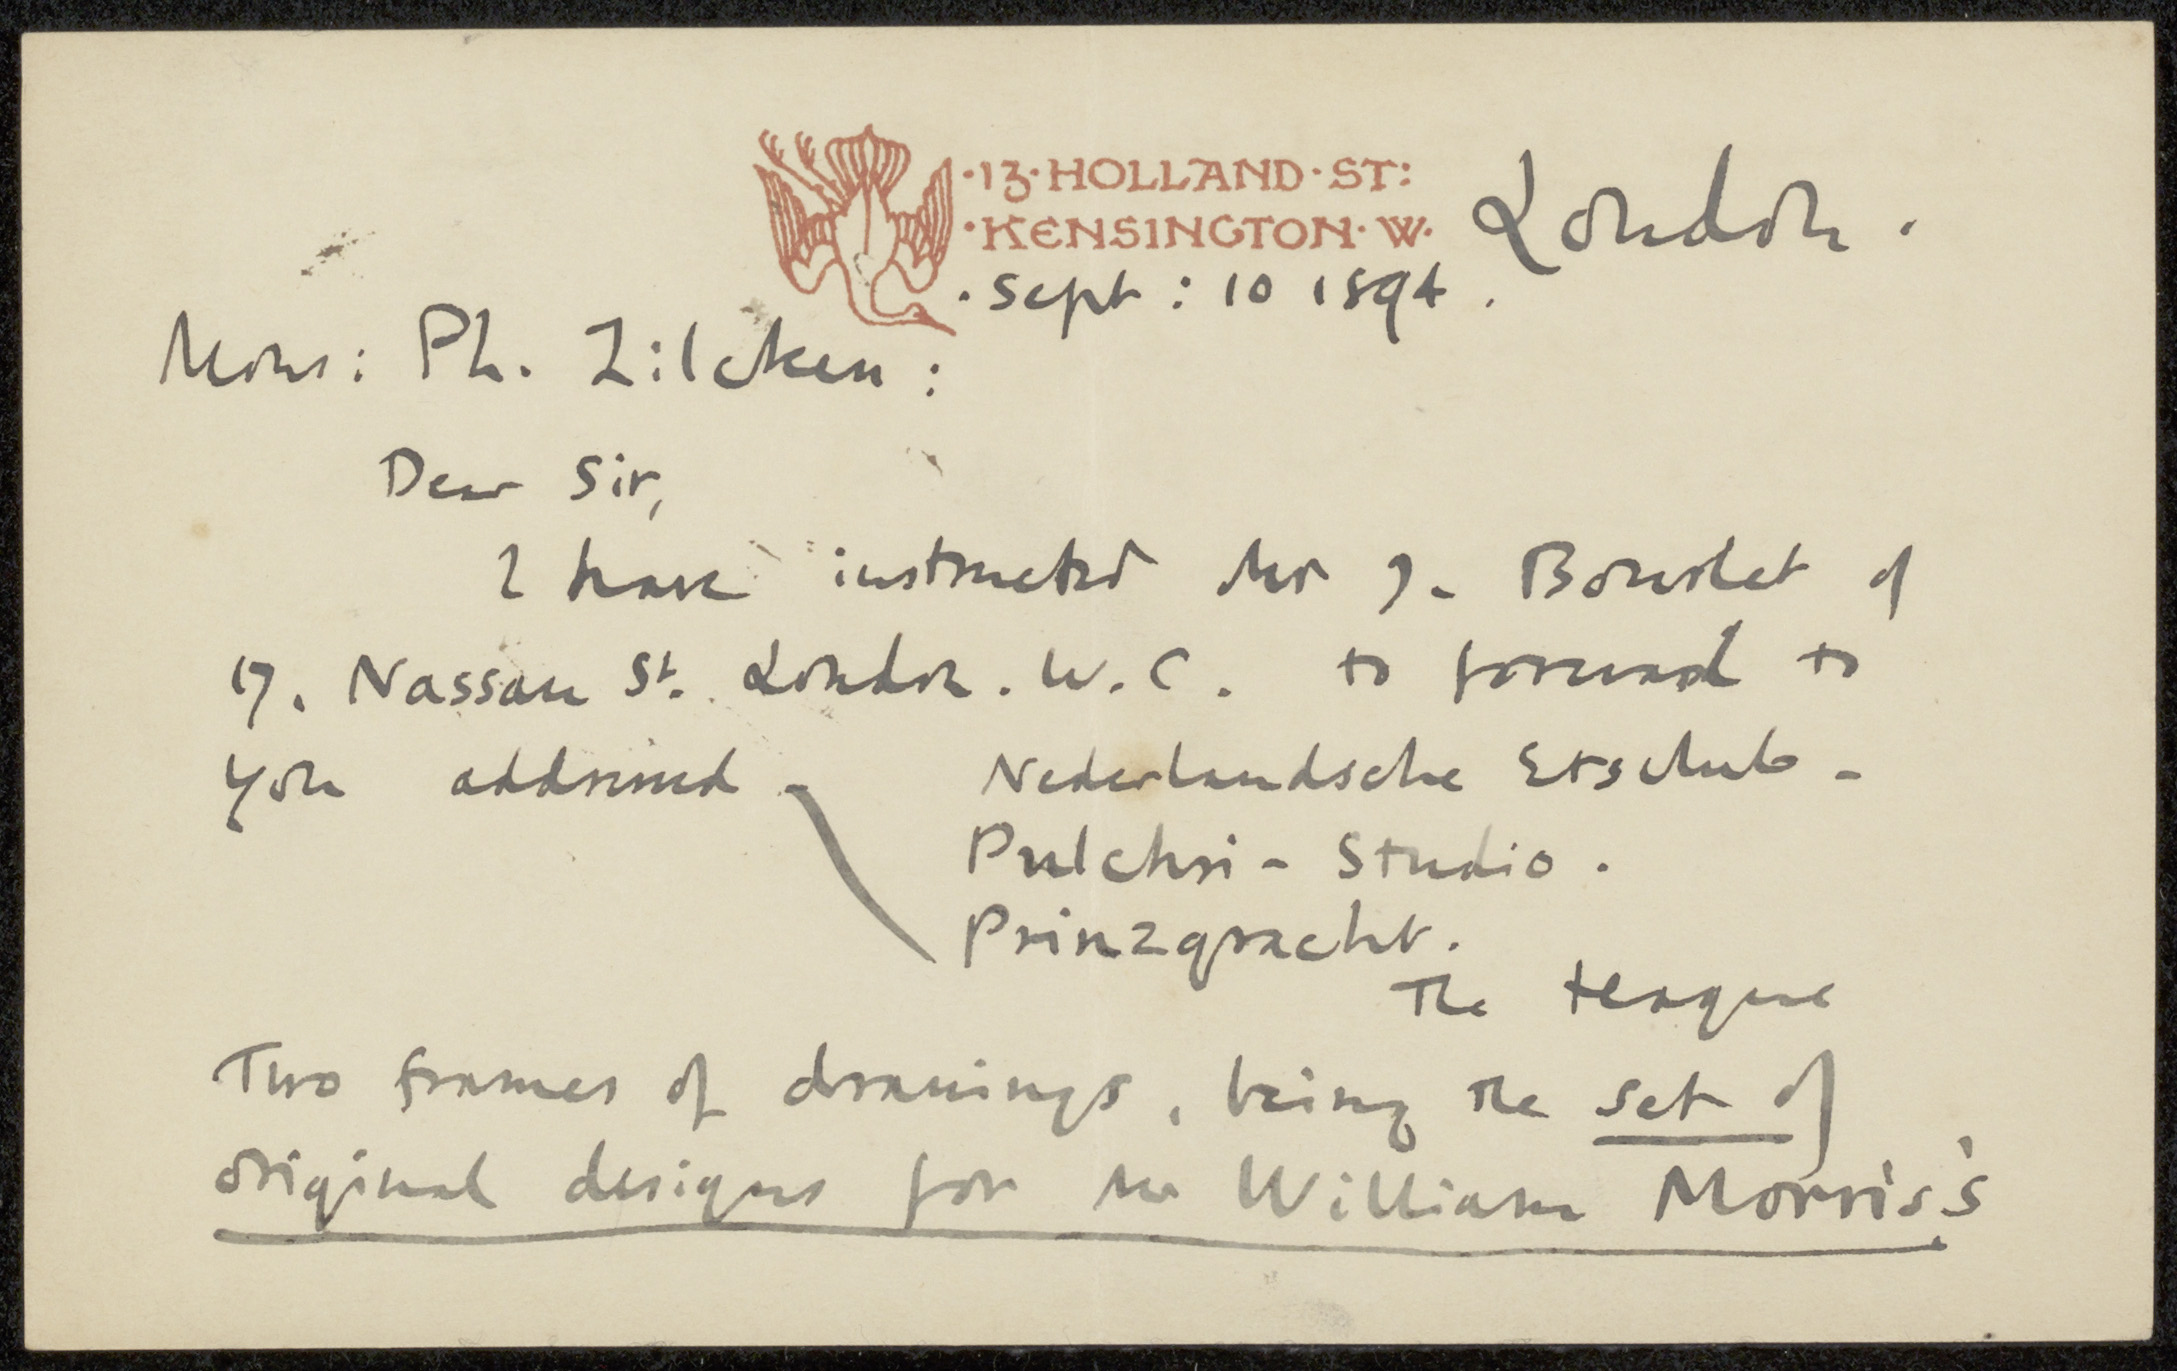 ·13·HOLLAND·ST:
·KENSINGTON·W· London.
· Sept : 10 1894.
Mons: Ph. Zilcken:
Dear Sir,
I have instructed Mr J. Bourlet of
17. Nassau St. London. W.C. to forward to
you addressed - Nederlandsche Etsclub -
Pulchri - Studio.
Prinzgracht.
The Hague
Two frames of drawings, being the set of
original designs for Mr William Morris's